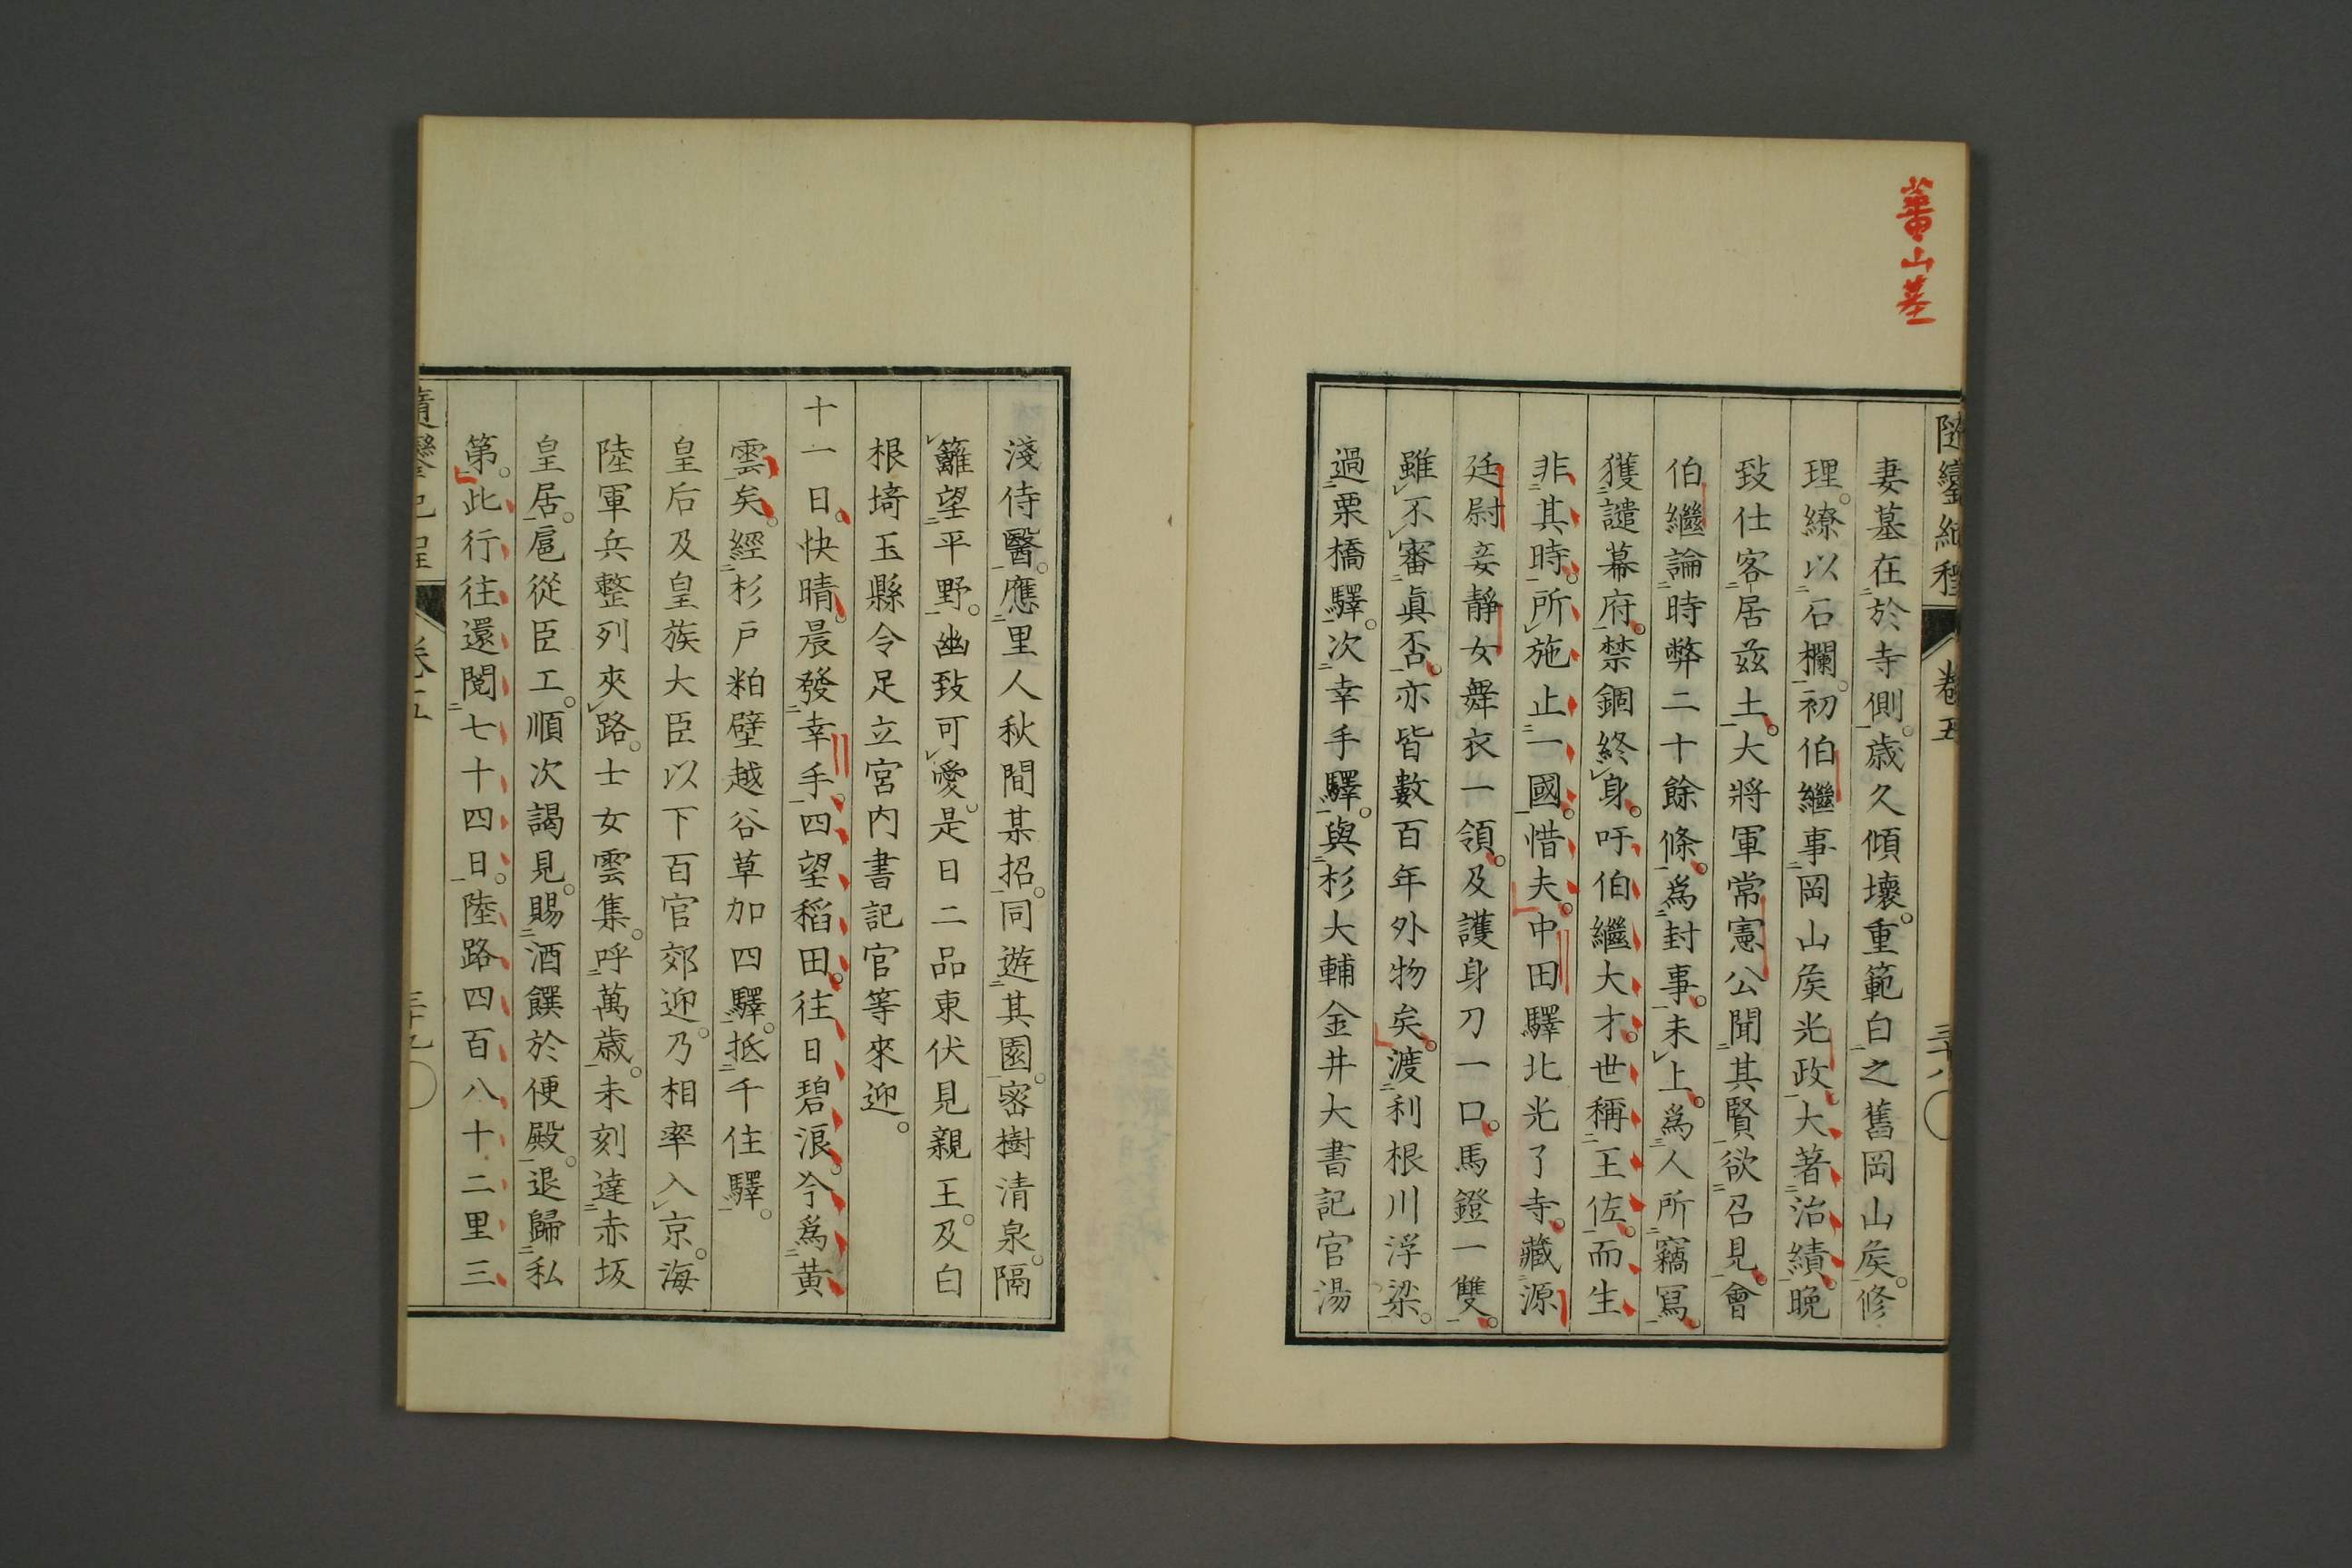 蕃山墓
隨鑾紀程
卷五
三十八
妻墓在於寺側。歲久傾壞。重範白之舊岡山矦。修
理。繚以石欄。初伯繼事岡山矦光政。大著治績。晚
致仕客居茲土。大將軍常憲公聞其賢欲召見。會
伯繼論時弊二十餘條。爲封事。未上。爲人所竊寫。
獲譴幕府。禁錮終身。吁伯繼大才。世稱王佐。而生
非其時。所施止一國。惜夫。中田驛北光了寺。藏源
廷尉妾靜女舞衣一領。及護身刀一口。馬鐙一雙。
雖不審眞否。亦皆數百年外物矣。渡利根川浮梁。
過栗橋驛。次幸手驛。與杉大輔金井大書記官湯
淺侍醫。應里人秋間某招。同遊其園。密樹清泉。隔
籬望平野。幽致可愛。是日二品東伏見親王。及白
根埼玉縣令足立宮内書記官等來迎。
十一日。快晴。晨發幸手。四望稻田。往日碧浪。今爲黃
雲矣。經杉戶粕壁越谷草加四驛。抵千住驛。
皇后及皇族大臣以下百官郊迎。乃相率入京。海
陸軍兵整列夾路。士女雲集。呼萬歲。未刻達赤坂
皇居。扈從臣工。順次謁見。賜酒饌於便殿。退歸私
第。此行往還閱七十四日。陸路四百八十二里三
隨鑾紀程
卷五
三十九